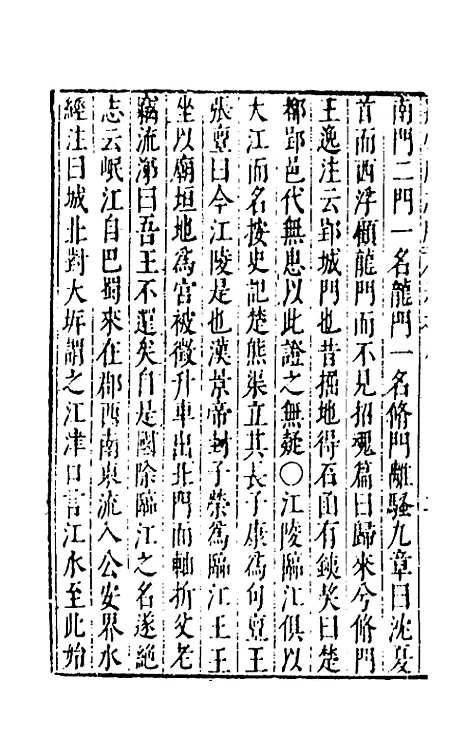 南門二門一名龍門一名脩門離騷九章曰沈夏
首而西浮顧龍門而不見招魂篇曰歸來兮脩門
王逸注云郢城門也昔掘地得石函有鐵契曰楚
都郢邑代無患以此證之無疑〇江陵臨江俱以
大江而名按史記楚熊渠立其長子康為句亶王
張亶曰今江陵是也漢景帝封子榮為臨江王王
坐以廟垣地為宮被徵升車出北門而軸折父老
竊流涕曰吾王不還矣自是國除臨江之名遂絕
志云岷江自巴蜀來在郡西南東流入公安界水
經注曰城北對大坼謂之江津口言江水至此始